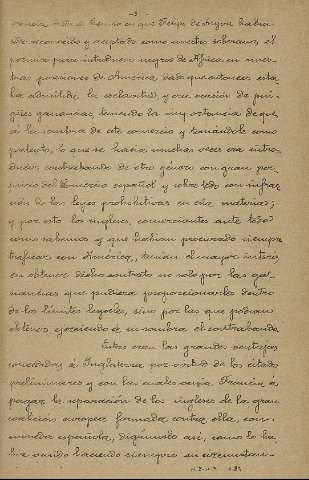 - 3 -
en que Felipe de Anjou había
sido reconocido y aceptado como nuestro soberano, el
permiso para introducir negros de Africa en nues-
tras posesiones de América, dado que entonces esta-
ba admitida la esclavitud, y era ocasión de pin-
gües ganancias, teniendo la importancia de que
á la sombra de este comercio y tomándole como
pretexto, lo que se hacía muchas veces era intro-
ducir contrabando de otro género con gran per-
juicio del Comercio español y sobre todo con infrac-
ción de las leyes prohibitivas en esta materia;
y por esto los ingleses, comerciantes ante todo
como sabemos y que habían procurado siempre
traficar con América, tenían el mayor interés
en obtener dicho contrato no solo por las ga-
nancias que pudiera proporcionarles dentro
de los límites legales, sino por las que podían
obtener ejerciendo á su sombra el contrabando.
Estas eran las grandes ventajas
concedidas á Inglaterra por virtud de los citados
preliminares y con las cuales venía Francia á
pagar la separación de los ingleses de la gran
coalición europea formada contra ella, con
moneda española, digámoslo así, como lo ha-
bía venido haciendo siempre en circunstan-